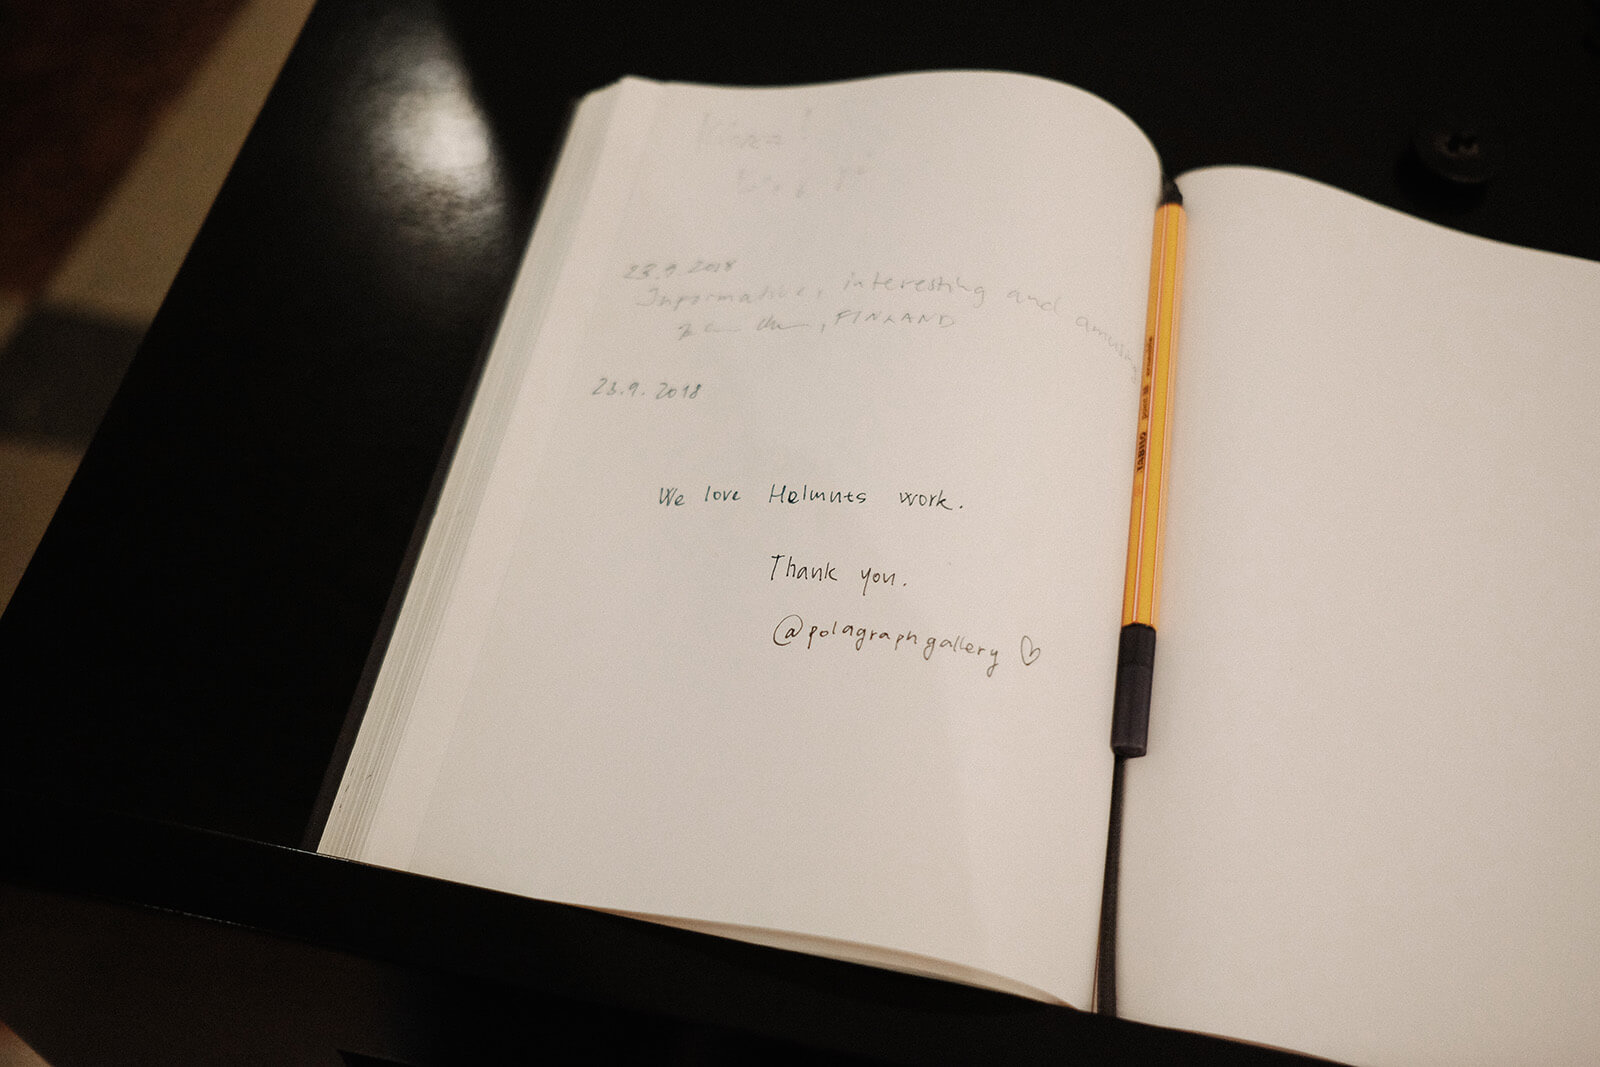 23.9 2018
Informative, interesting and amusing
FINLAND
23.9. 2018
We love Helmuts work.
Thank you.
@polagraphgallery ♡
STABILO point 88